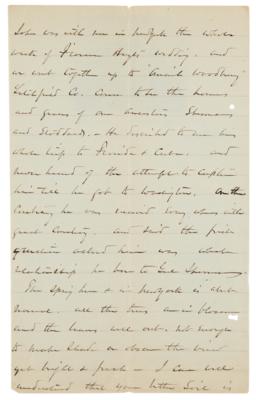 John was with me in New York the whole
week of Florence Hoyt's wedding, and
we went together up to "Ancient Woodbury"
Litchfield Co. Conn to see the homes
and graves of our Ancestors Shermans
and Stoddards. He described to me his
whole trip to Florida & Cuba, and
never heard of the attempt to capture
him till he got to Washington. On the
he was received every where with
great Cordiality, and said the first
question asked him was what
relationship he bore to Genl Sherman.
The Spring here & in New York is about
normal. all the trees are in blossom
and the leaves well out, not enough
to make shade or obscure the view
yet bright & fresh - I can well
understand that your letter is